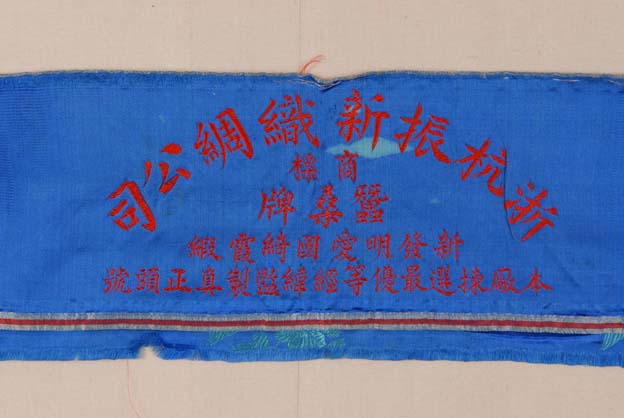 浙杭振新織綢公司
商標
蠶桑牌
新發明愛國綺霞緞
本廠揀選最優等經緯監製真正頭號